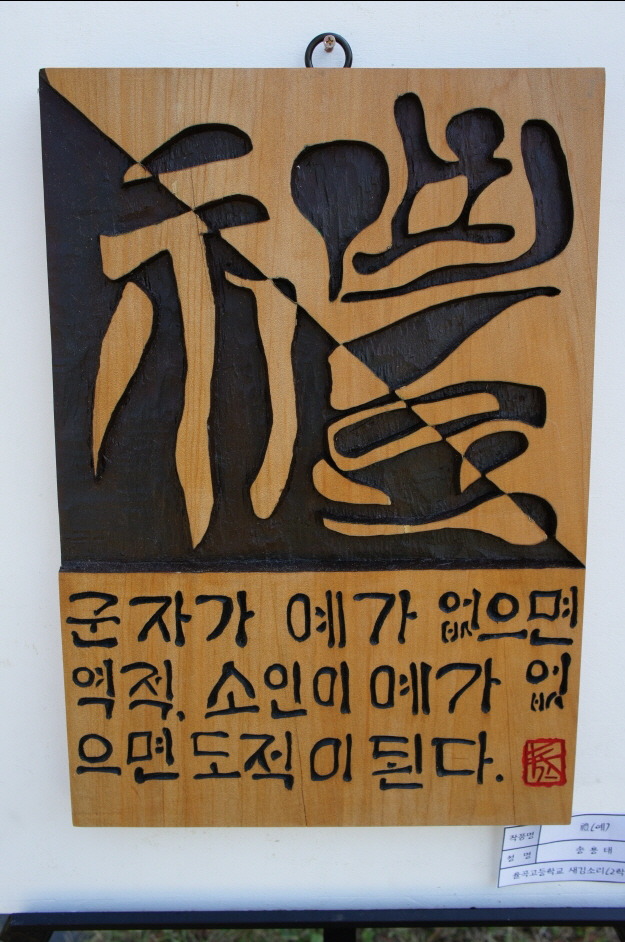 禮
군자가 예가 없으면
역적, 소인이 예가 없
으면 도적이 된다.
작품명 禮(예)
성 명 송 용 태
율곡고등학교 새김소리(2학